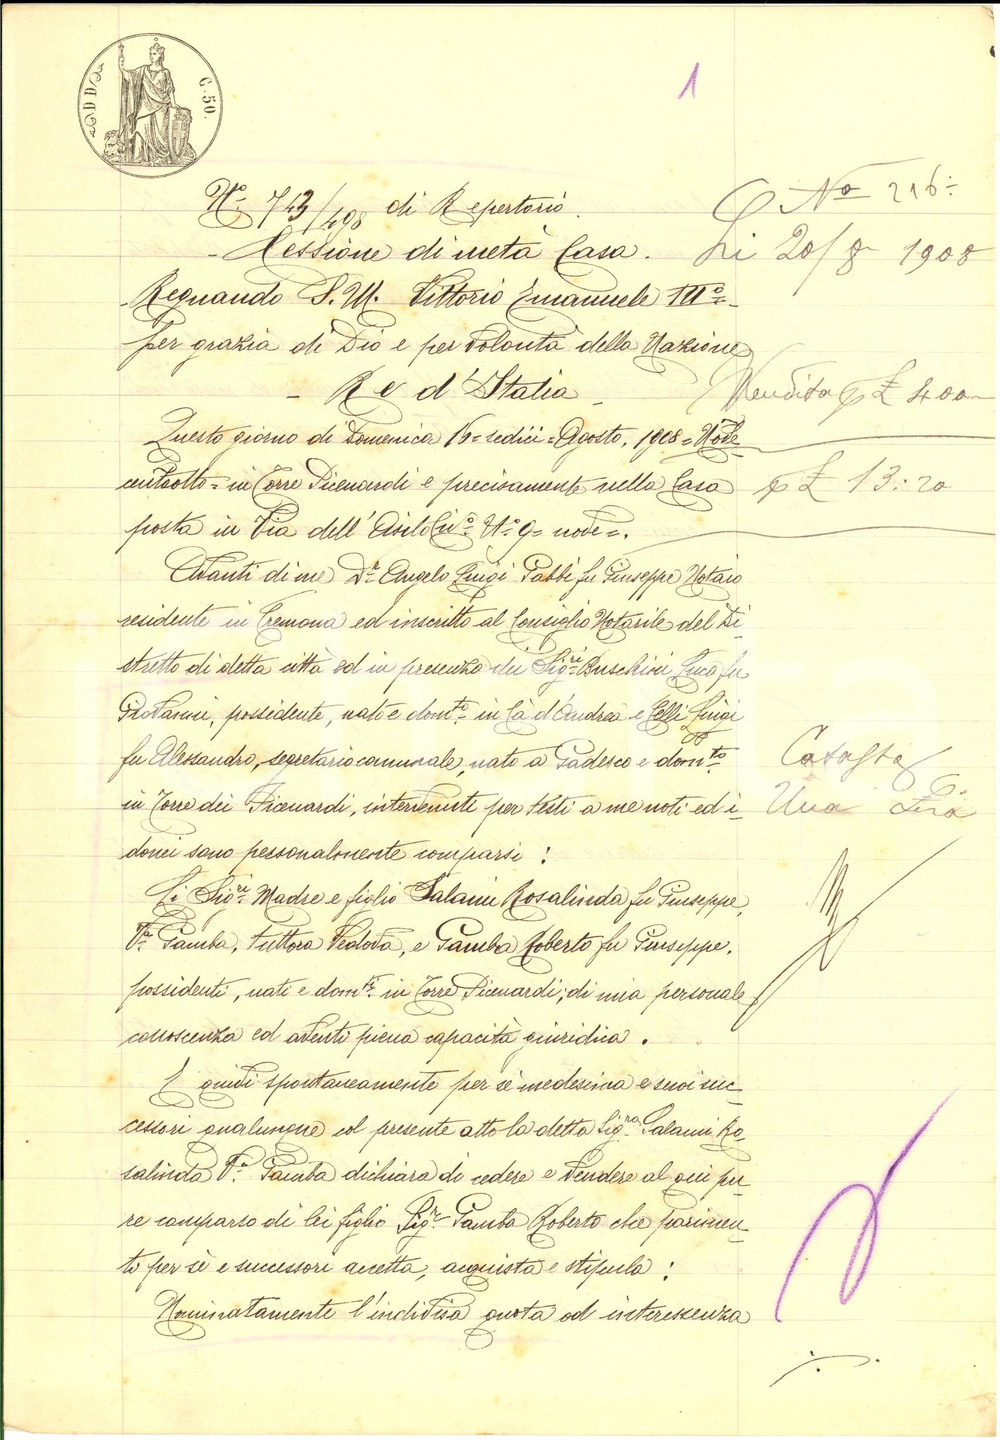 C. 50.
1
N.º 743/498 di Repertorio.
Cessione di metà Casa.
Regnando S. M. Vittorio Emanuele IIIº
per grazia di Dio e per volontà della Nazione
Re d'Italia
Questo giorno di Domenica 16 = sedici = Agosto, 1908 = Nove
centootto = in Torre Picenardi e precisamente nella Casa
posta in Via dell'Asilo Civº Nº 9 = nove =.
Avanti di me Dr Angelo Luigi Gabbi fu Giuseppe Notaio
residente in Cremona ed inscritto al Consiglio Notarile del Di-
stretto di detta città ed in presenza dei Sigri Buschini Luca fu
Giovanni, possidente, nato e domto in Cà d'Andrea e Celli Luigi
fu Alessandro, segretario comunale, nato a Gadesco e domto
in Torre dei Picenardi, intervenuti per testi a me noti ed i-
donei sono personalmente comparsi:
Li Sigri Madre e figlio Salami Rosalinda fu Giuseppe,
Va Gamba, tuttora Vedova, e Gamba Roberto fu Giuseppe,
possidenti, nati e domti in Torre Picenardi, di mia personale
conoscenza ed aventi piena capacità giuridica.
E quivi spontaneamente per sè medesima e suoi suc-
cessori qualunque col presente atto la detta Sigra Salami Ro-
salinda Va Gamba dichiara di cedere e vendere al qui pu-
re comparso di lei figlio Sigr Gamba Roberto che parimen-
ti per sè e successori accetta, acquista e stipula:
Nominatamente l'indivisa quota od interessenza
No 216
Li 20/8 1908
Vendita £ 400
£ 13:20
Catasta
Una Lira